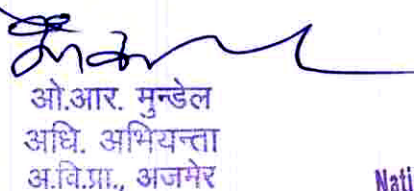 ओ.आर. मुन्डेल
अधि. अभियन्ता
अ.वि.प्रा., अजमेर
Nati